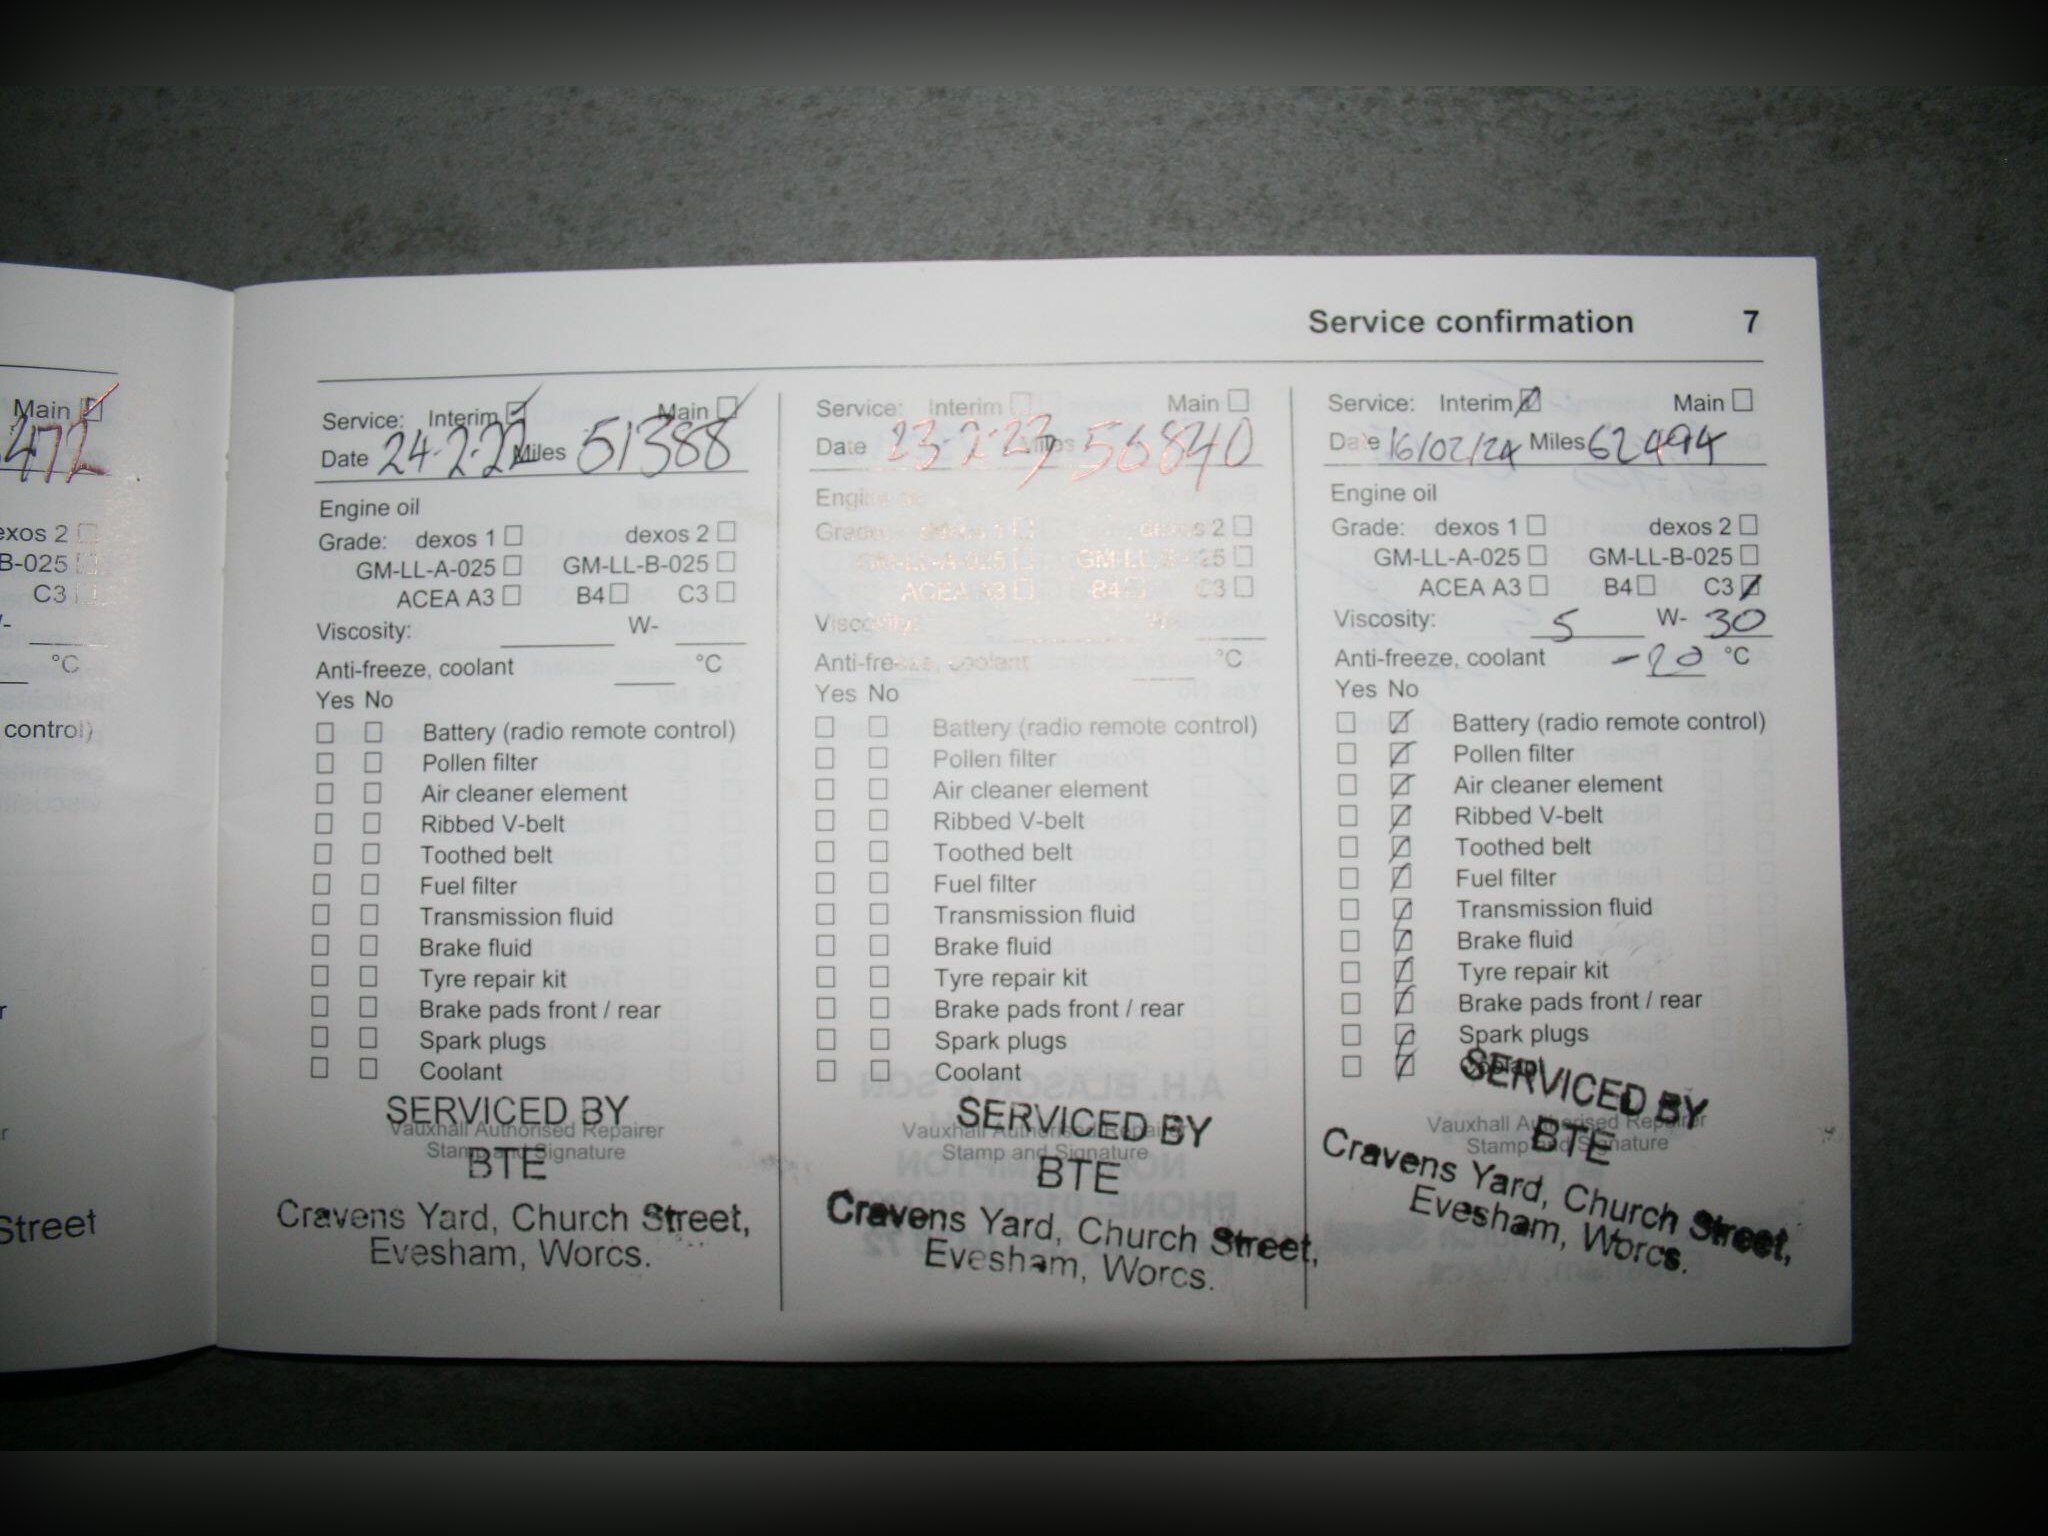 Service confirmation 7
Main
472
exos 2
B-025
C3
°C
control)
Street
Service: Interim Main
Date 24-2-22 Miles 51388
Engine oil
Grade: dexos 1 dexos 2
GM-LL-A-025 GM-LL-B-025
ACEA A3 B4 C3
Viscosity: W-
Anti-freeze, coolant °C
Yes No
Battery (radio remote control)
Pollen filter
Air cleaner element
Ribbed V-belt
Toothed belt
Fuel filter
Transmission fluid
Brake fluid
Tyre repair kit
Brake pads front / rear
Spark plugs
Coolant
SERVICED BY
Vauxhall Authorised Repairer
Stamp and Signature
BTE
Cravens Yard, Church Street,
Evesham, Worcs.
Service: Interim Main
Date 23-2-23 Miles 56840
Engine oil
Grade: dexos 1 dexos 2
GM-LL-A-025 GM-LL-B-025
ACEA A3 B4 C3
Viscosity: W-
Anti-freeze, coolant °C
Yes No
Battery (radio remote control)
Pollen filter
Air cleaner element
Ribbed V-belt
Toothed belt
Fuel filter
Transmission fluid
Brake fluid
Tyre repair kit
Brake pads front / rear
Spark plugs
Coolant
SERVICED BY
Vauxhall Authorised Repairer
Stamp and Signature
BTE
Cravens Yard, Church Street,
Evesham, Worcs.
Service: Interim Main
Date 16/02/24 Miles 62494
Engine oil
Grade: dexos 1 dexos 2
GM-LL-A-025 GM-LL-B-025
ACEA A3 B4 C3
Viscosity: 5 W- 30
Anti-freeze, coolant -20 °C
Yes No
Battery (radio remote control)
Pollen filter
Air cleaner element
Ribbed V-belt
Toothed belt
Fuel filter
Transmission fluid
Brake fluid
Tyre repair kit
Brake pads front / rear
Spark plugs
Coolant
SERVICED BY
Vauxhall Authorised Repairer
Stamp and Signature
BTE
Cravens Yard, Church Street,
Evesham, Worcs.